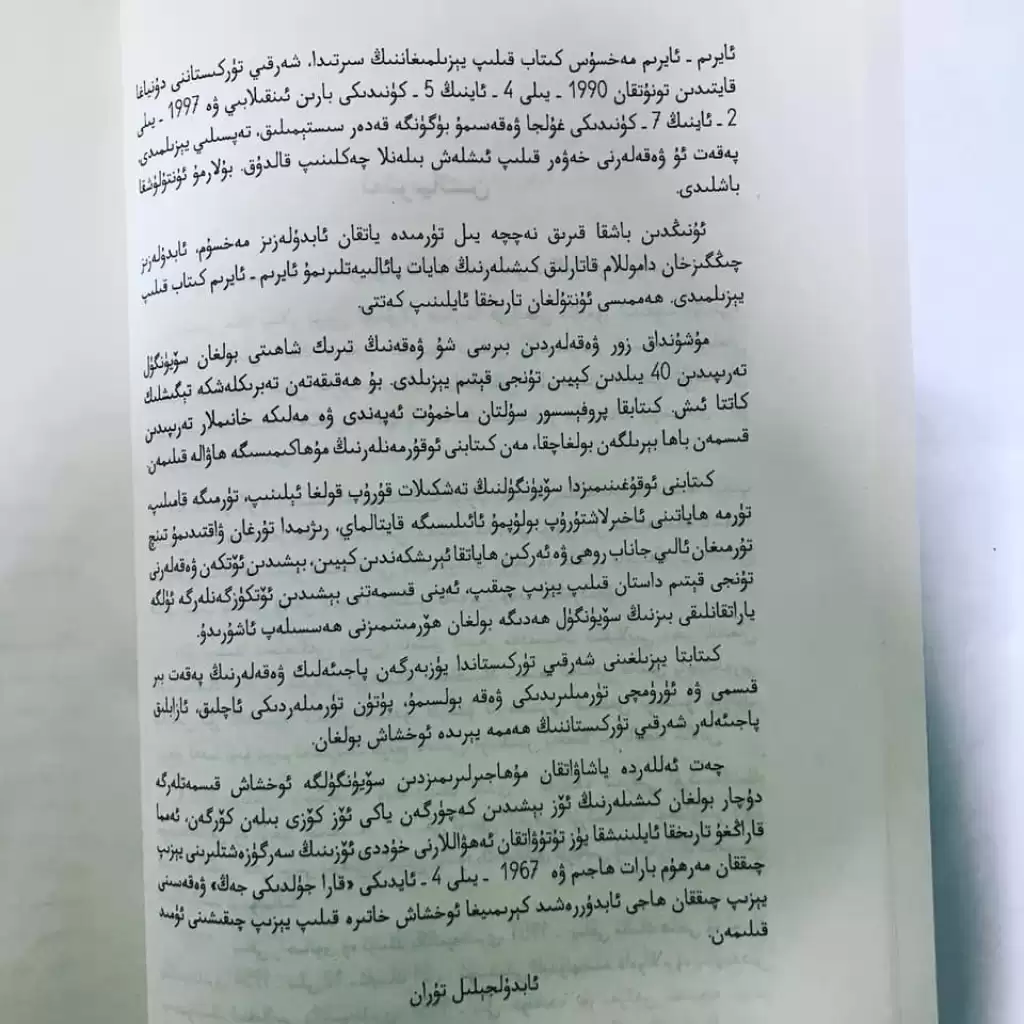 ئايرىم ـ ئايرىم مەخسۇس كىتاب قىلىپ يېزىلمىغاننىڭ سىرتىدا، شەرقىي تۈركىستاننى دۇنياغا
قايتىدىن تونۇتقان 1990 ـ يىلى 4 ـ ئاينىڭ 5 ـ كۈنىدىكى بارىن ئىنقىلابىي ۋە 1997 ـ يىلى
2 ـ ئاينىڭ 7 ـ كۈنىدىكى غۇلجا ۋەقەسىمۇ بۈگۈنگە قەدەر سىستېمىلىق، تەپسىلىي يېزىلمىدى.
پەقەت ئۇ ۋەقەلەرنى خەۋەر قىلىپ ئىشلەش بىلەنلا چەكلىنىپ قالدۇق. بۇلارمۇ ئۇنتۇلۇشقا
باشلىدى.
ئۇنىڭدىن باشقا قىرىق نەچچە يىل تۈرمىدە ياتقان ئابدۇلەزىز مەخسۇم، ئابدۇلەزىز
چىڭگىزخان داموللام قاتارلىق كىشىلەرنىڭ ھايات پائالىيەتلىرىمۇ ئايرىم ـ ئايرىم كىتاب قىلىپ
يېزىلمىدى. ھەممىسى ئۇنتۇلغان تارىخقا ئايلىنىپ كەتتى.
مۇشۇنداق زور ۋەقەلەردىن بىرسى شۇ ۋەقەنىڭ تىرىك شاھىتى بولغان سۆيۈنگۈل
تەرىپىدىن 40 يىلدىن كېيىن تۇنجى قېتىم يېزىلدى. بۇ ھەقىقەتەن تەبرىكلەشكە تېگىشلىك
كاتتا ئىش. كىتابقا پروفېسسور سۇلتان ماخمۇت ئەپەندى ۋە مەلىكە خانىملار تەرىپىدىن
قىسمەن باھا بېرىلگەن بولغاچقا، مەن كىتابنى ئوقۇرمەنلەرنىڭ مۇھاكىمىسىگە ھاۋالە قىلىمەن.
كىتابنى ئوقۇغىنىمىزدا سۆيۈنگۈلنىڭ تەشكىلات قۇرۇپ قولغا ئېلىنىپ، تۈرمىگە قامىلىپ،
تۈرمە ھاياتىنى ئاخىرلاشتۇرۇپ بولۇپمۇ ئائىلىسىگە قايتالماي، رىژىمدا تۇرغان ۋاقتىدىمۇ تىنچ
تۇرمىغان ئالىي جاناب روھى ۋە ئەركىن ھاياتقا ئېرىشكەندىن كېيىن، بېشىدىن ئۆتكەن ۋەقەلەرنى
تۇنجى قېتىم داستان قىلىپ يېزىپ چىقىپ، ئەينى قىسمەتنى بېشىدىن ئۆتكۈزگەنلەرگە ئۈلگە
ياراتقانلىقى بىزنىڭ سۆيۈنگۈل ھەدىگە بولغان ھۆرمىتىمىزنى ھەسسىلەپ ئاشۇرىدۇ.
كىتابتا يېزىلغىنى شەرقىي تۈركىستاندا يۈزبەرگەن پاجىئەلىك ۋەقەلەرنىڭ پەقەت بىر
قىسمى ۋە ئۈرۈمچى تۈرمىلىرىدىكى ۋەقە بولسىمۇ، پۈتۈن تۈرمىلەردىكى ئاچلىق، ئازابلىق
پاجىئەلەر شەرقىي تۈركىستاننىڭ ھەممە يېرىدە ئوخشاش بولغان.
چەت ئەللەردە ياشاۋاتقان مۇھاجىرلىرىمىزدىن سۆيۈنگۈلگە ئوخشاش قىسمەتلەرگە
دۇچار بولغان كىشىلەرنىڭ ئۆز بېشىدىن كەچۈرگەن ياكى ئۆز كۆزى بىلەن كۆرگەن، ئەمما
قاراڭغۇ تارىخقا ئايلىنىشقا يۈز تۇتۇۋاتقان ئەھۋاللارنى خۇددى ئۆزىنىڭ سەرگۈزەشتلىرىنى يېزىپ
چىققان مەرھۇم بارات ھاجىم ۋە 1967 ـ يىلى 4 ـ ئايدىكى «قارا جۈلدىكى جەڭ» ۋەقەسىنى
يېزىپ چىققان ھاجى ئابدۇررەشىد كېرىمىيغا ئوخشاش خاتىرە قىلىپ يېزىپ چىقىشىنى ئۈمىد
قىلىمەن.
ئابدۇلجېلىل تۇران